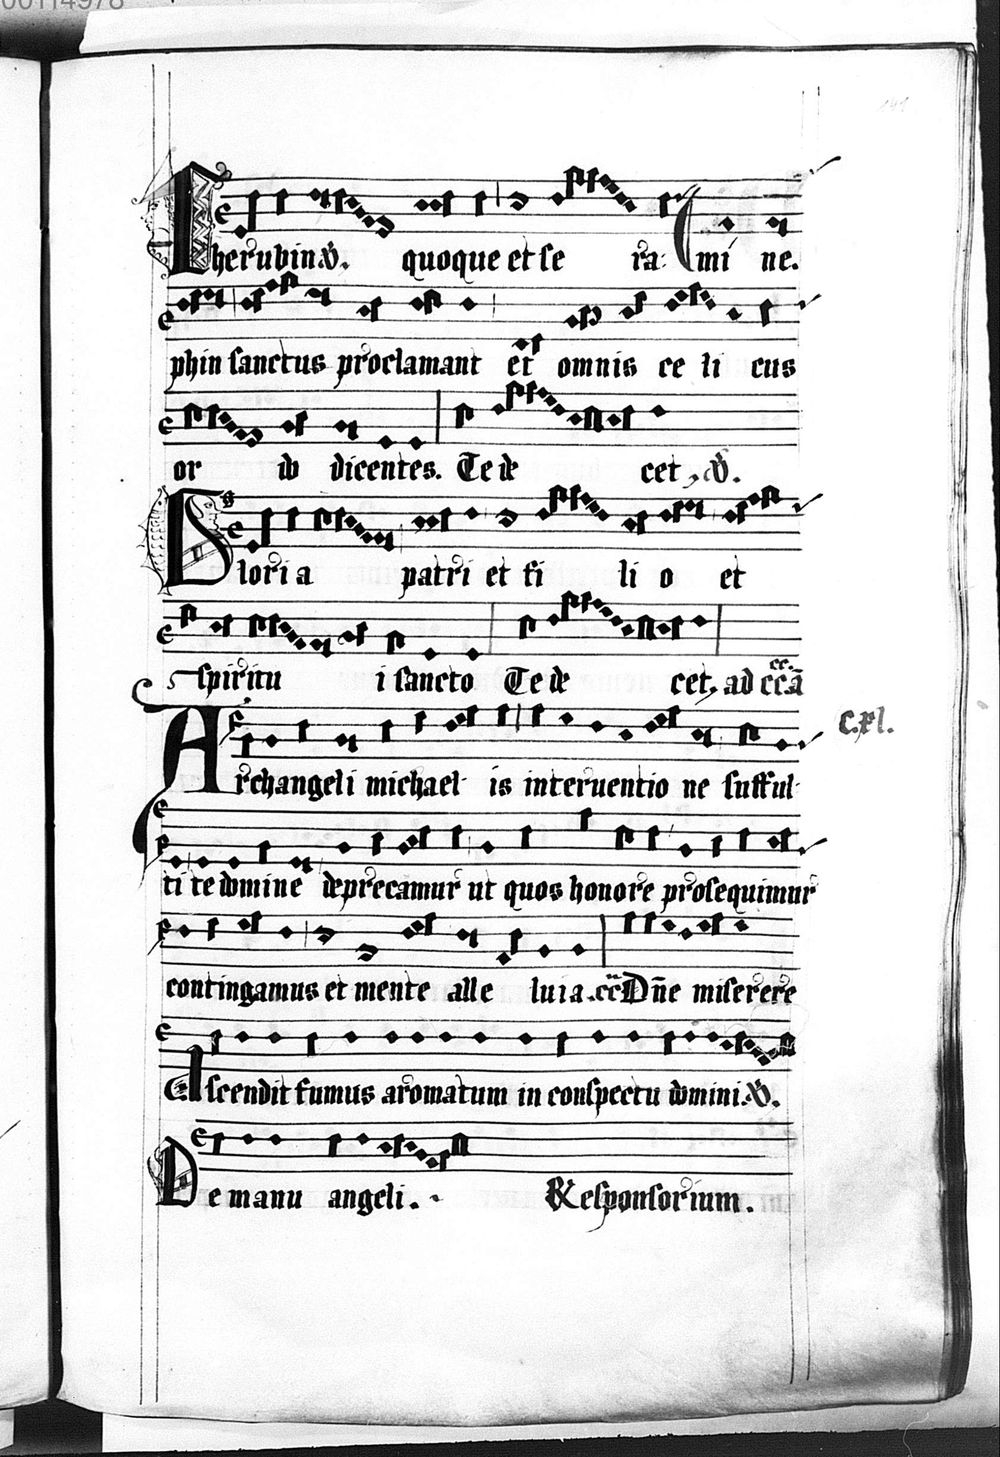 00114978
141
Cherubin. ℣. quoque et se ra: mi ne.
phin sanctus proclamant et omnis ce li cus
or do dicentes. Te de cet, ℣.
Gloria patri et fi li o et
spiritu i sancto Te de cet, ad ccā
Archangeli michael is interuentio ne sufful
C.xl.
ti te domine deprecamur ut quos honore prosequimur
contingamus et mente alle luia. Dn̄e miserere
Ascendit fumus aromatum in conspectu domini. ℣.
De manu angeli. Responsorium.